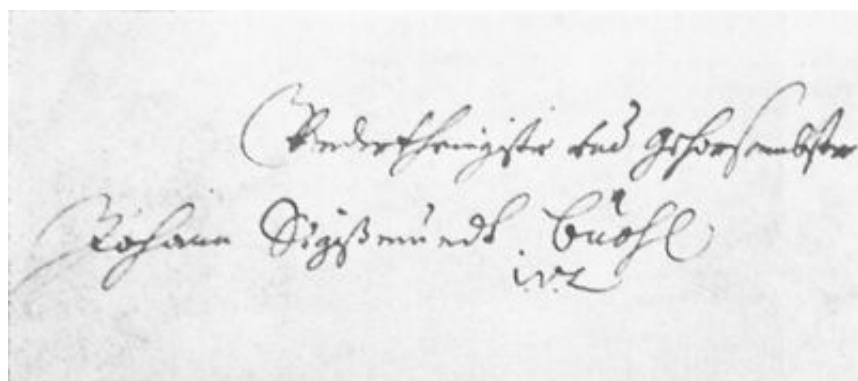 Vnderthenigster vnd gehorsambster
Johann Sigißmundt Büohl